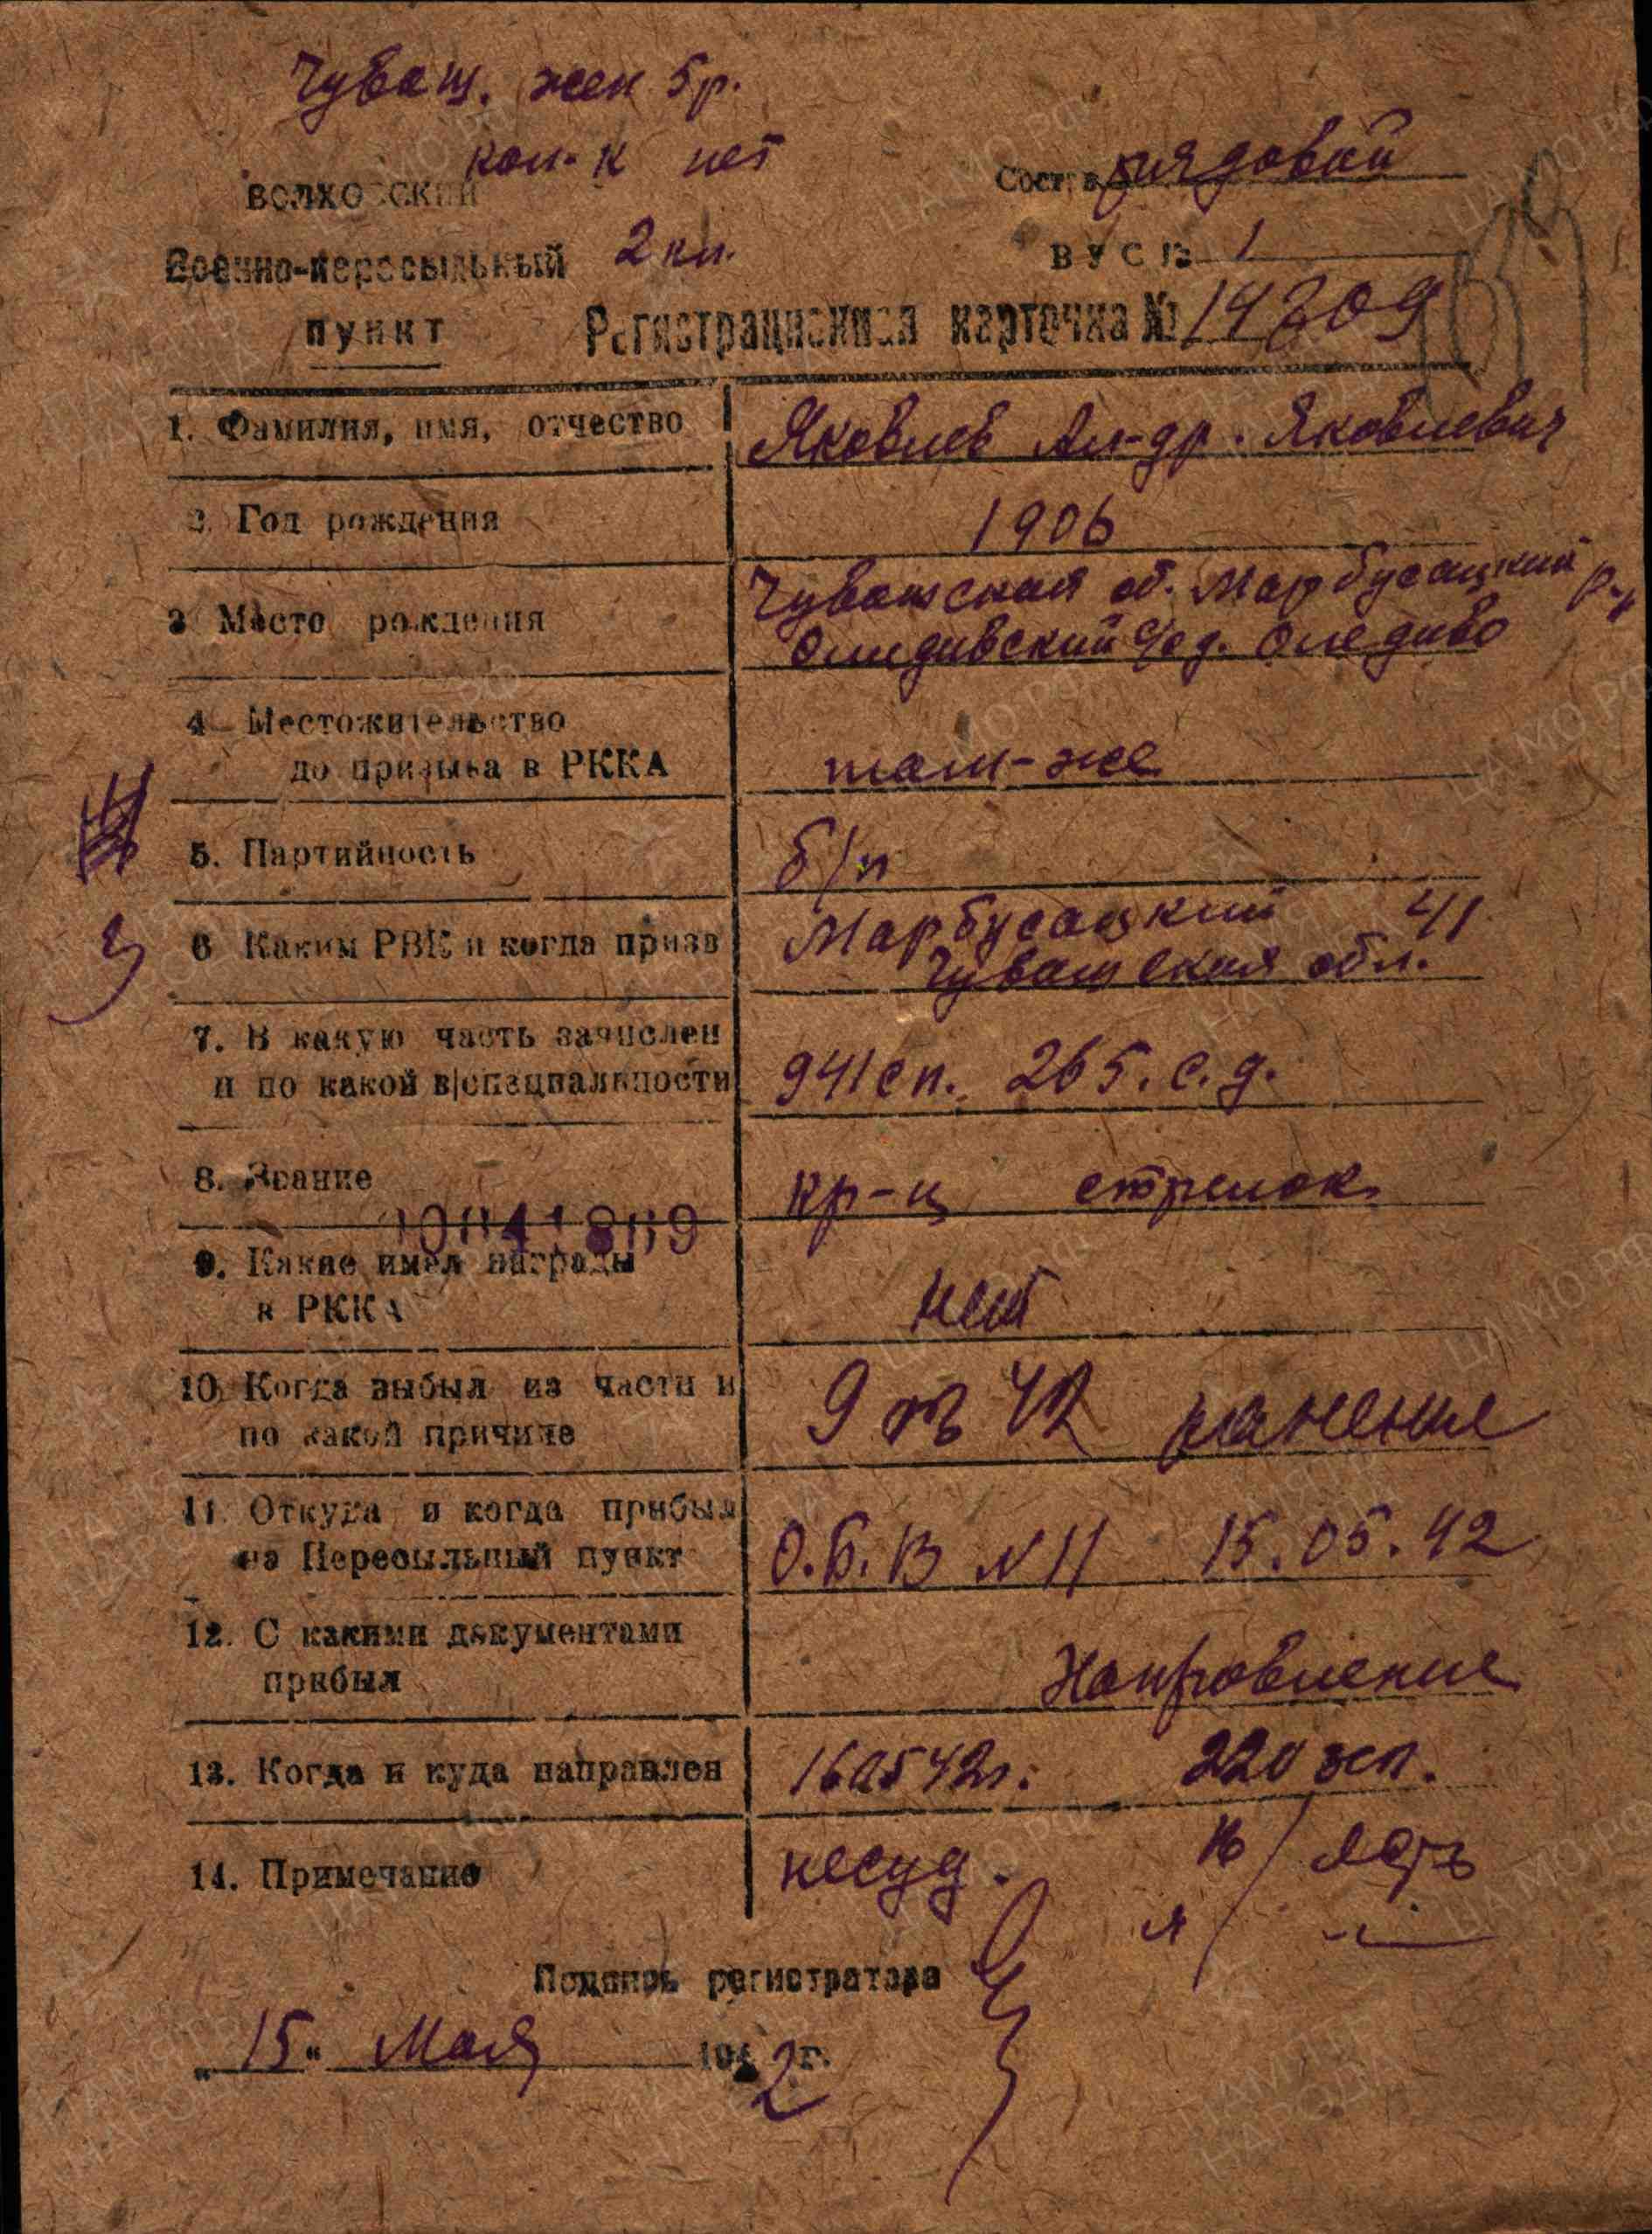 Чуваш. жен 5р.
кол-к нет
ВОЛХОВСКИЙ
Состав рядовой
Военно-пересыльный 2 кл.
ВУС № 1
пункт
Регистрационная карточка № 14209
1. Фамилия, имя, отчество Яковлев Ал-др. Яковлевич
2. Год рождения 1906
3 Место рождения Чувашская об. Марбусацкий р-н
Олидивский с/с д. Оледиво
4 Местожительство
до призыва в РККА там-же
5. Партийность б/п
6 Каким РВК и когда призв Марбусацкий 41
Чувашская обл.
7. В какую часть зачислен
и по какой в|специальности 941 сп. 265. с. д.
8. Звание кр-ц стрелок
9. Какие имел награды
в РККА нет
10. Когда выбыл из части и
по какой причине 9 42 ранение
11. Откуда и когда прибыл
на Пересыльный пункт О.Б.В N 11 15.05.42
12. С какими документами
прибыл Направление
13. Когда и куда направлен 160542г. 220 зсп.
14. Примечание несуд.
Подпись регистратора
„15" Мая 1942 г.